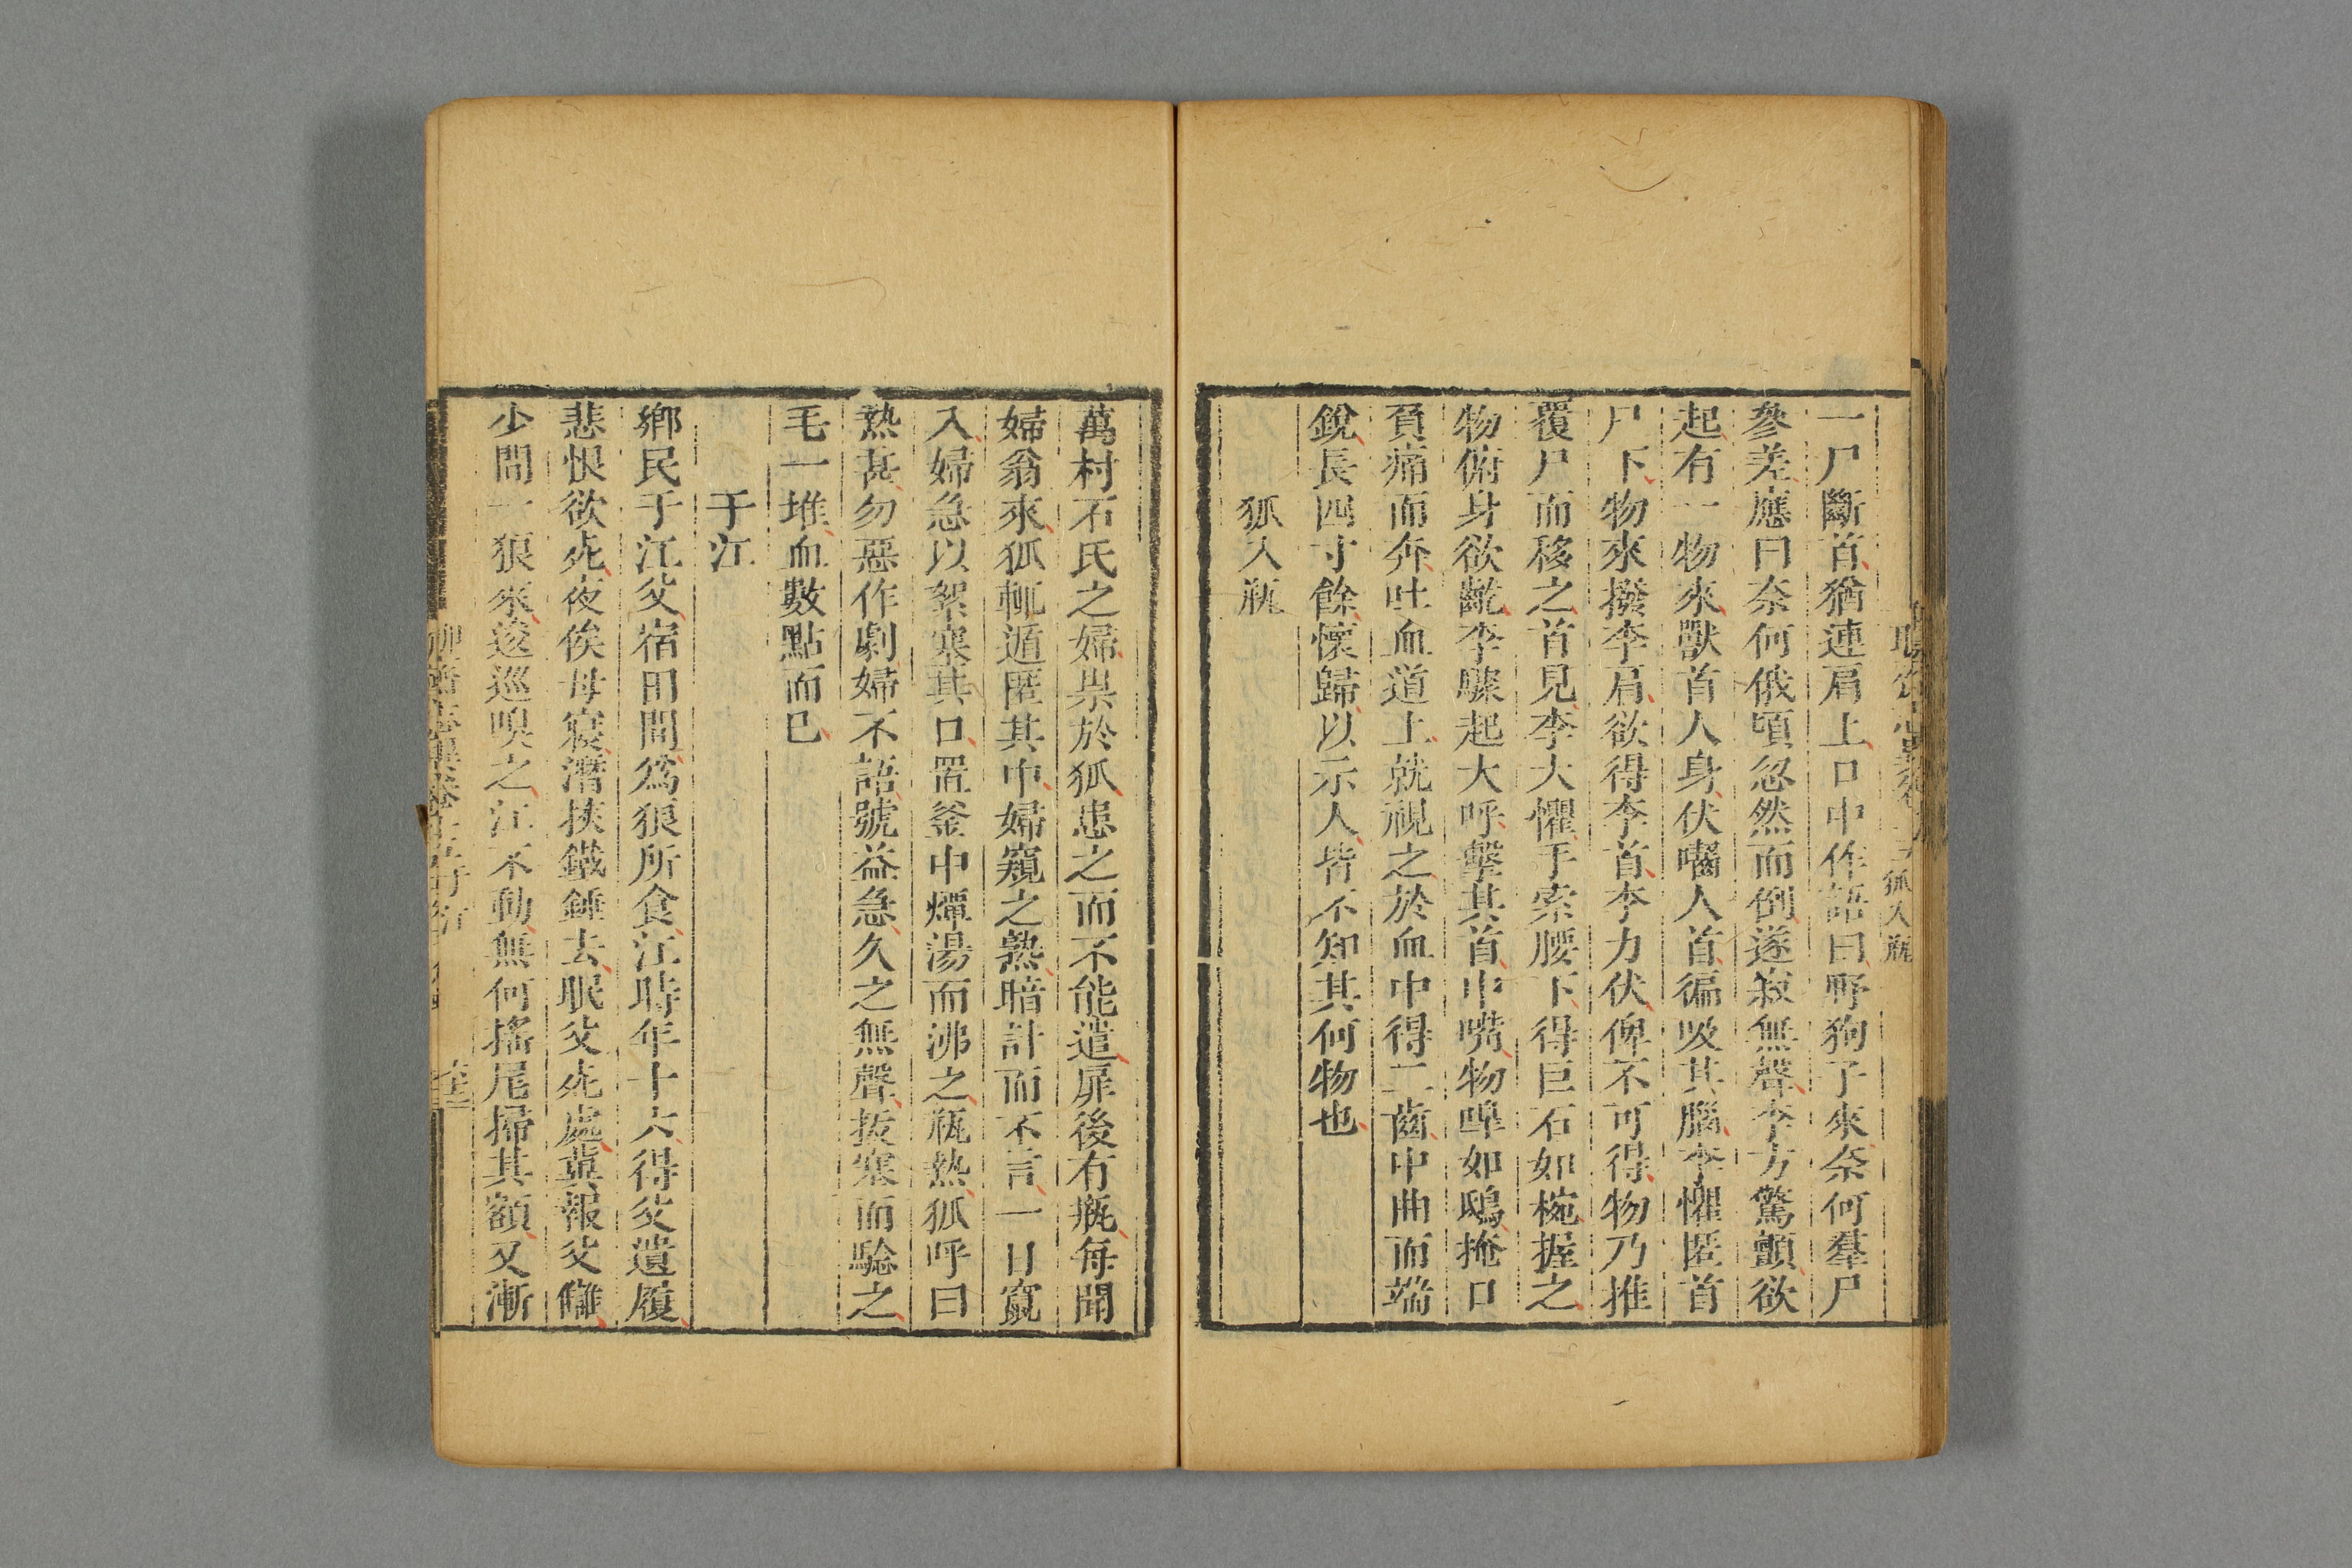 狐入瓶
一尸斷首猶連肩上口中作語曰野狗子來奈何羣尸
參差應曰奈何俄頃忽然而倒遂寂無聲李方驚顫欲
起有一物來獸首人身伏嚙人首徧吸其腦李懼匿首
尸下物來撥李肩欲得李首李力伏俾不可得物乃推
覆尸而移之首見李大懼手索腰下得巨石如椀握之
物俯身欲齕李驟起大呼擊其首中嘴物嘷如鴟掩口
負痛而奔吐血道上就視之於血中得二齒中曲而端
銳長四寸餘懷歸以示人皆不知其何物也
狐入瓶
萬村石氏之婦祟於狐患之而不能遣扉後有瓶每聞
婦翁來狐輒遁匿其中婦窺之熟暗計而不言一日竄
入婦急以絮塞其口置釜中燂湯而沸之瓶熱狐呼曰
熱甚勿惡作劇婦不語號益急久之無聲拔塞而驗之
毛一堆血數點而已
于江
鄉民于江父宿田間爲狼所食江時年十六得父遺履
悲恨欲死夜俟母寢潛挾鐵錘去眠父死處冀報父讎
少間一狼來逡巡嗅之江不動無何搖尾掃其額又漸